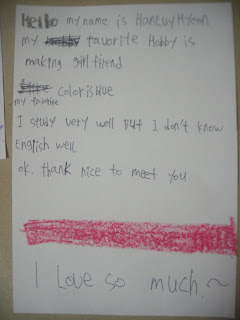 Hello my name is HanLuyHyeon
my favorite Hobby is
making girl firend
my favorite color is blue
I study very well But I don't know
English well
ok. thank nice to meet you
I Love so much.~